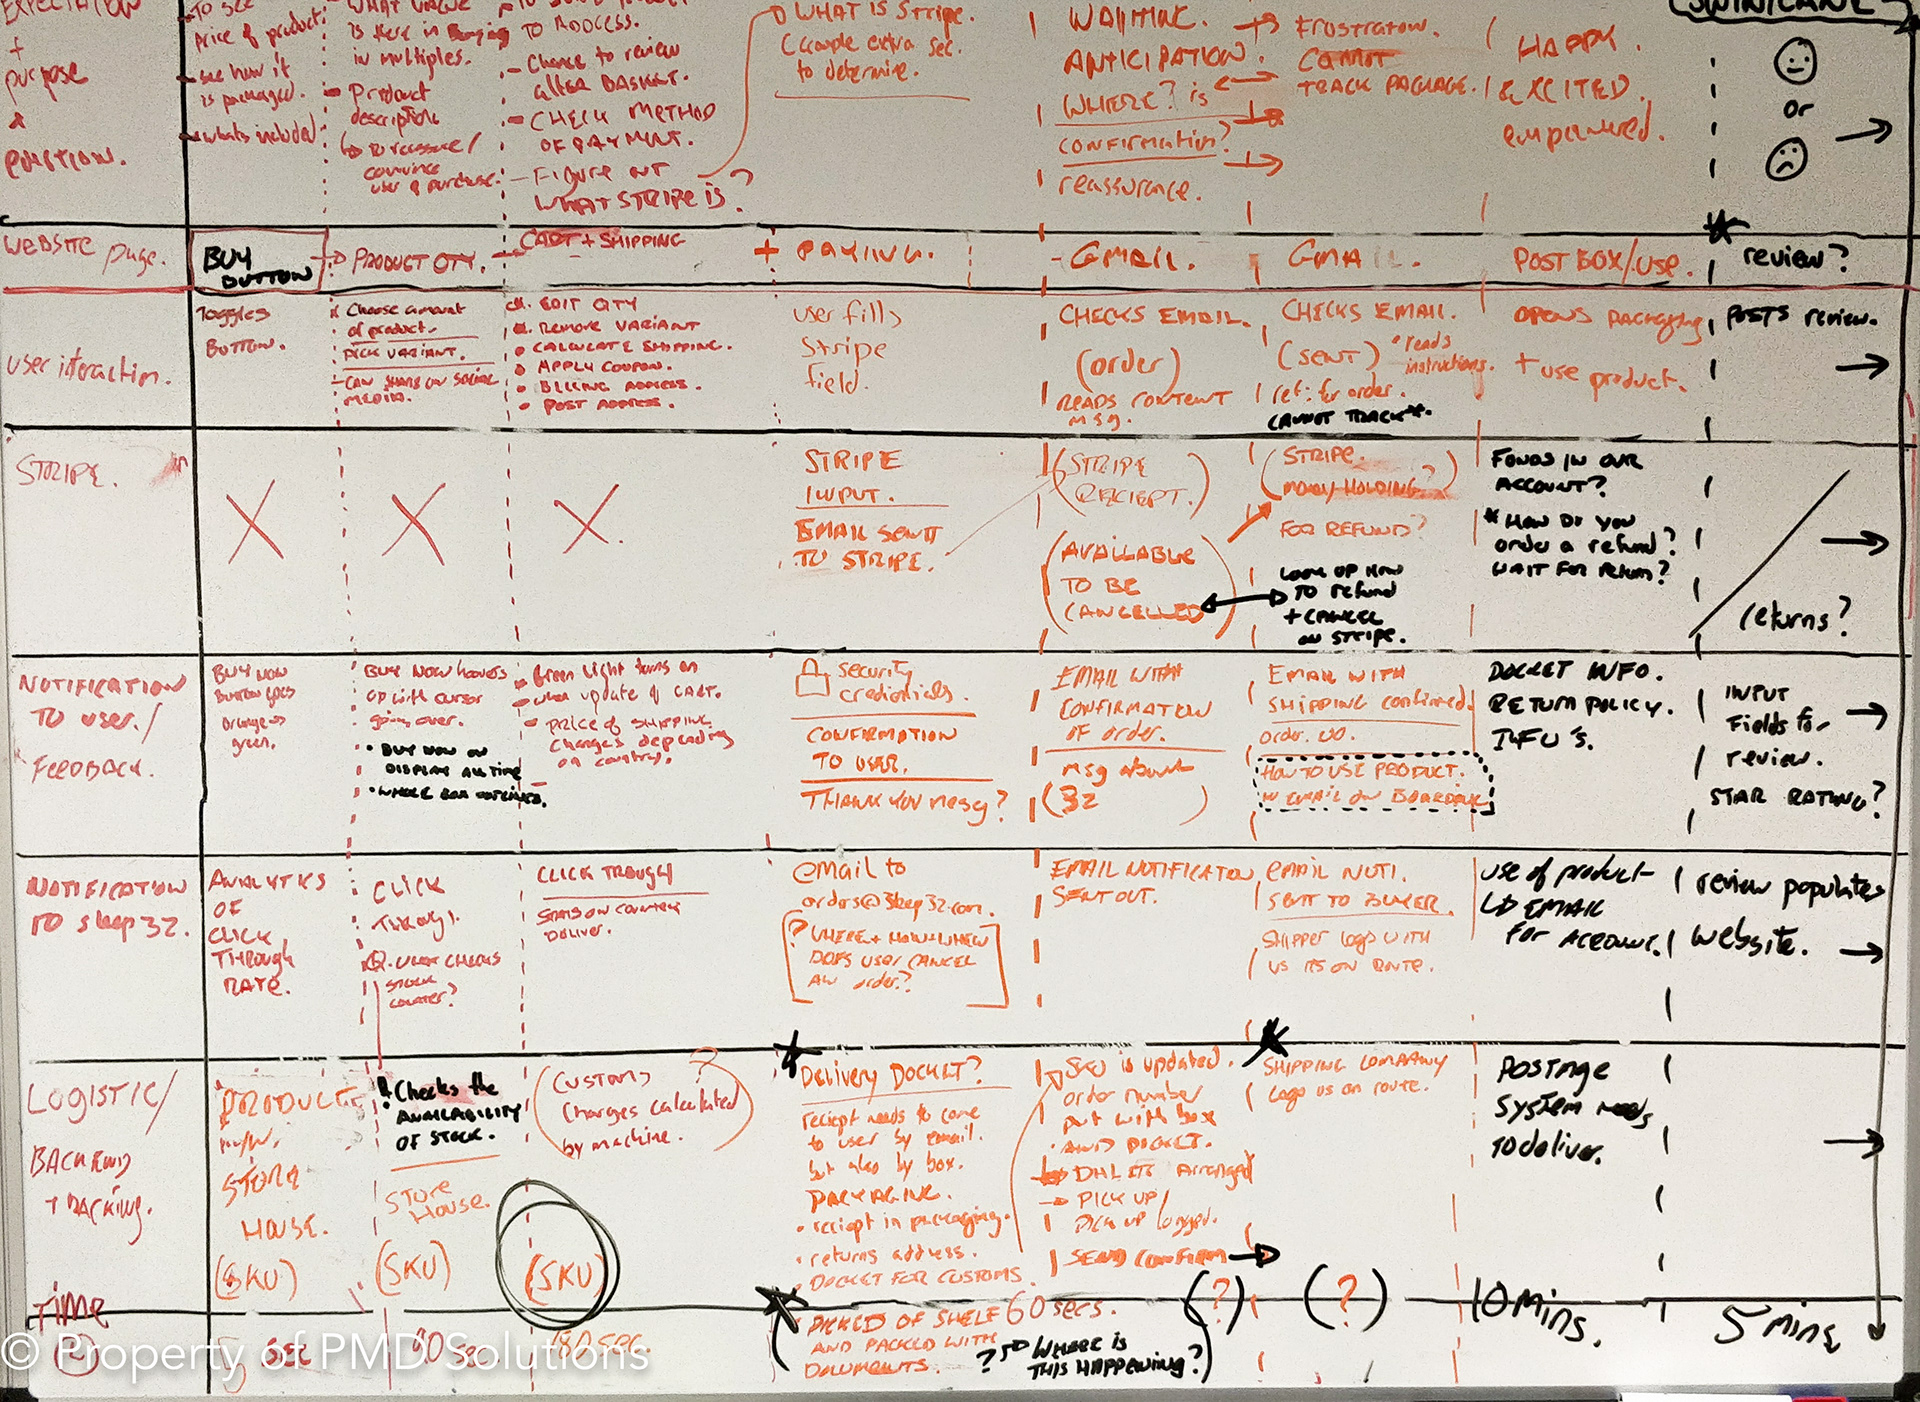 EXPECTATION
+
purpose
&
EMOTION.
TO see
price of product
see how it
is packaged.
whats included
WHAT VALUE
is there in Buying
in multiples.
Product
description
to reassure/
convince
user of purchase.
TO ADDRESS.
- Chance to review
alter BASKET.
- CHECK METHOD
OF PAYMENT.
- FIGURE OUT
WHAT STRIPE IS?
WHAT IS STRIPE.
(couple extra sec.
to determine.
WAITING.
ANTICIPATION.
WHERE? is
CONFIRMATION?
reassurance.
FRUSTRATION.
CANNOT
TRACK PACKAGE.
HAPPY.
EXCITED.
empowered.
or
WEBSITE page.
BUY
BUTTON
PRODUCT QTY.
CART + SHIPPING
+ PAYING.
- GMAIL.
GMAIL.
POST BOX/USE.
review?
user interaction.
Toggles
BUTTON.
Choose amount
of product.
PICK VARIANT.
- CAN SHARE ON SOCIAL
MEDIA.
EDIT QTY
REMOVE VARIANT
CALCULATE SHIPPING.
APPLY COUPON.
BILLING ADDRESS.
POST ADDRESS.
user fills
Stripe
field.
CHECKS EMAIL.
(order)
READS CONTENT
msg.
CHECKS EMAIL.
(SENT)
• reads
instructions.
ref: for order.
CANNOT TRACK*.
OPENS PACKAGING
+ use product.
POSTS review.
STRIPE.
X
X
X
STRIPE
INPUT.
EMAIL SENT
TO STRIPE.
(STRIPE
RECIEPT.)
(AVAILABLE
TO BE
CANCELLED)
(STRIPE.
MONEY HOLDING?)
FOR REFUND?
LOOK UP HOW
TO refund
+ CANCEL
ON STRIPE.
FUNDS IN OUR
ACCOUNT?
* HOW DO YOU
order a refund?
WAIT FOR return?
returns?
NOTIFICATION
TO user./
FEEDBACK.
BUY NOW
BUTTON goes
orange
green.
BUY NOW hovers
up with cursor
going over.
• BUY NOW ON
DISPLAY ALL TIME
• WHOLE BOX OUTLINED.
Green light turns on
when update of CART.
• PRICE of SHIPPING
changes depending
on country.
security
credentials.
CONFIRMATION
TO USER.
THANK YOU mesg?
EMAIL WITH
CONFIRMATION
OF order.
msg about
EMAIL WITH
SHIPPING confirmed.
order. no.
HOW TO USE PRODUCT.
DOCKET INFO.
RETURN POLICY.
INFO'S.
INPUT
Fields for
review.
STAR RATING?
NOTIFICATION
TO sleep32.
ANALYTICS
OF
CLICK
THROUGH
RATE.
CLICK
THROUGH.
Q. user CHECKS
STOCK
counter?
CLICK TROUGH
DELIVER.
email to
orders@sleep32.com.
? WHERE + HOW + WHEN
DOES USER CANCEL
AN order?
EMAIL NOTIFICATION
SENT OUT.
EMAIL NOTI.
SENT TO BUYER.
SHIPPER logs WITH
US ITS ON ROUTE.
use of product
EMAIL
FOR ACCOUNT.
review populates
website.
LOGISTIC/
BACKEND
TRACKING.
PRODUCT
STORE
HOUSE.
(SKU)
• Checks the
AVAILABILITY
OF STOCK.
STORE
HOUSE.
(SKU)
(CUSTOMS ?
charges calculated
by machine.)
(SKU)
Delivery DOCKET?
reciept needs to come
to user by email.
but also by box.
PACKAGING.
• reciept in packaging.
• returns address.
• DOCKET FOR CUSTOMS.
SKU is updated.
order number
put with box
AND DOCKET.
DHL ETC Arranged
→ PICK UP/
PICK UP logged.
SEND CONFIRM
SHIPPING COMPANY
logs us on route.
POSTAGE
SYSTEM needs
TO deliver.
TIME
5 sec
PICKED OF SHELF 60 secs.
AND PACKED WITH
DOCUMENTS.
? WHERE IS
THIS HAPPENING?
(?)
(?)
10 mins.
5 mins
© Property of PMD Solutions